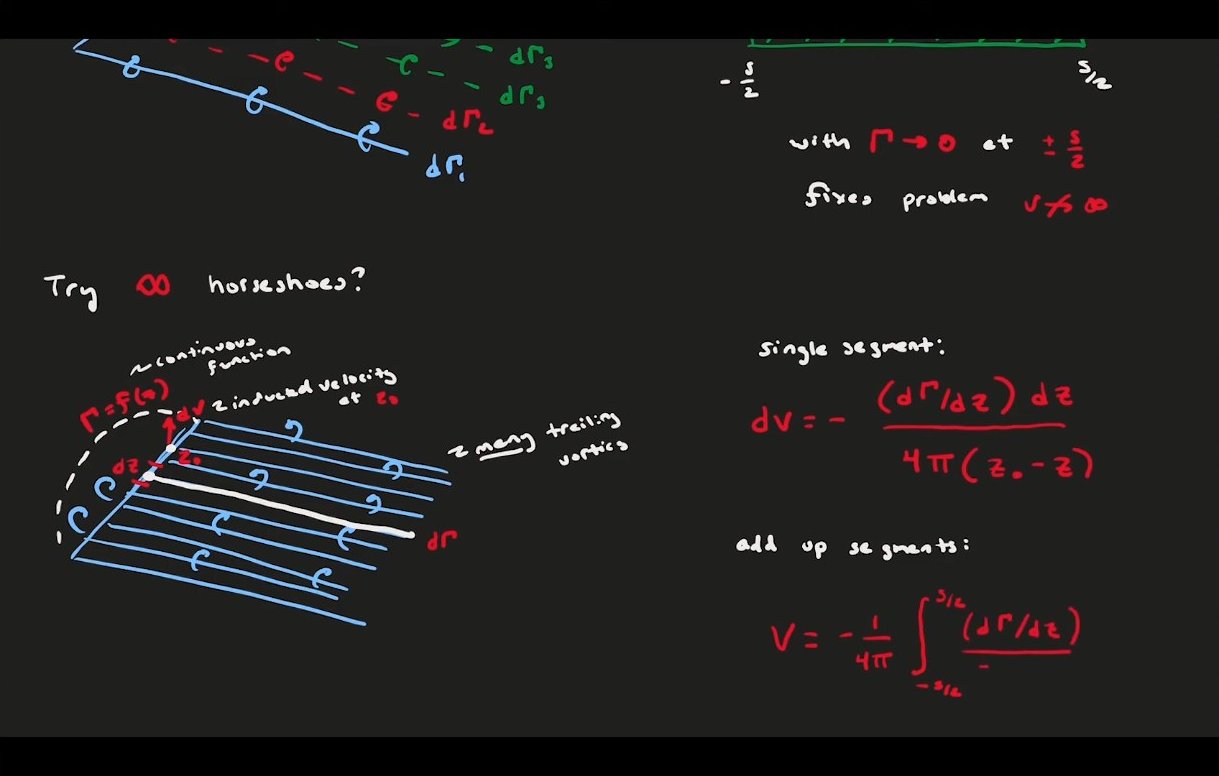 dΓ₃
dΓ₃
dΓ₂
dΓ₁
- s/2
s/2
with Γ → 0 at ± s/2
fixes problem v ↛ ∞
Try ∞ horseshoes?
~ continuous
function
Γ = f(z)
dv
~ induced velocity
at z₀
~ many trailing
vortics
z₀
dz
dΓ
single segment:
dv = - (dΓ/dz) dz / 4π(z₀ - z)
add up segments:
V = - 1/4π ∫_{-s/2}^{s/2} (dΓ/dz)